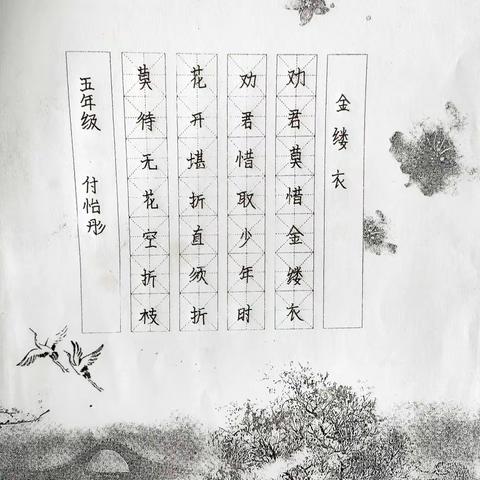 金缕衣
劝君莫惜金缕衣
劝君惜取少年时
花开堪折直须折
莫待无花空折枝
五年级 付怡彤